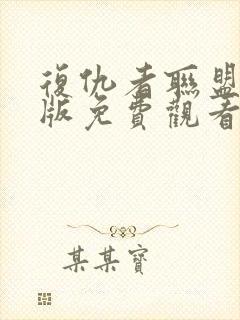 復仇者聯盟
版免費觀看
某某寶